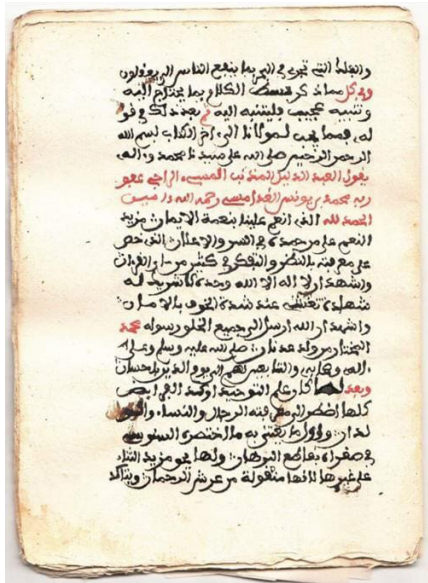 والفلك التي تجري في البحر بما ينفع الناس الى يعقلون
وفي كل مما ذكر بسط الكلام بما يحتاج اليه
وتنبيه عجيب فليتنبه اليه ثم بعد ذلك في
له فمما يجب لمولانا الى اخر الكتاب بسم الله
الرحمن الرحيم صلى الله على سيدنا محمد وءاله
يقول العبد الذليل المذنب المسيء الراجي عفو
ربه محمد بن يونس الغدامسي رحمه الله
الحمد لله الذي انعم علينا بنعمة الايمان مزيد
النعم على من حمده في السر والاعلان الذي خص
على معرفته بالنظر والتفكر في كثير من القرءان
واشهد ان لا اله الا الله وحده لا شريك له
شهادة عند شدة الخوف بالامان
واشهد ان الله ارسل الى جميع الخلق رسوله محمد
المختار من ولد عدنان صلى الله عليه وسلم وعلى
ءاله وصحابه والتابعين لهم الى يوم الدين باحسان
وبعد لما كان علم التوحيد اوكد
كلها اضطر الى معرفته الرجال والنساء
لدان واولى ما يعتنى به ما اختصره السنوسي
في صغراه بقاطع البرهان ولها مزيد الثناء
على غيرها لانها منقولة من عرش الرحمان